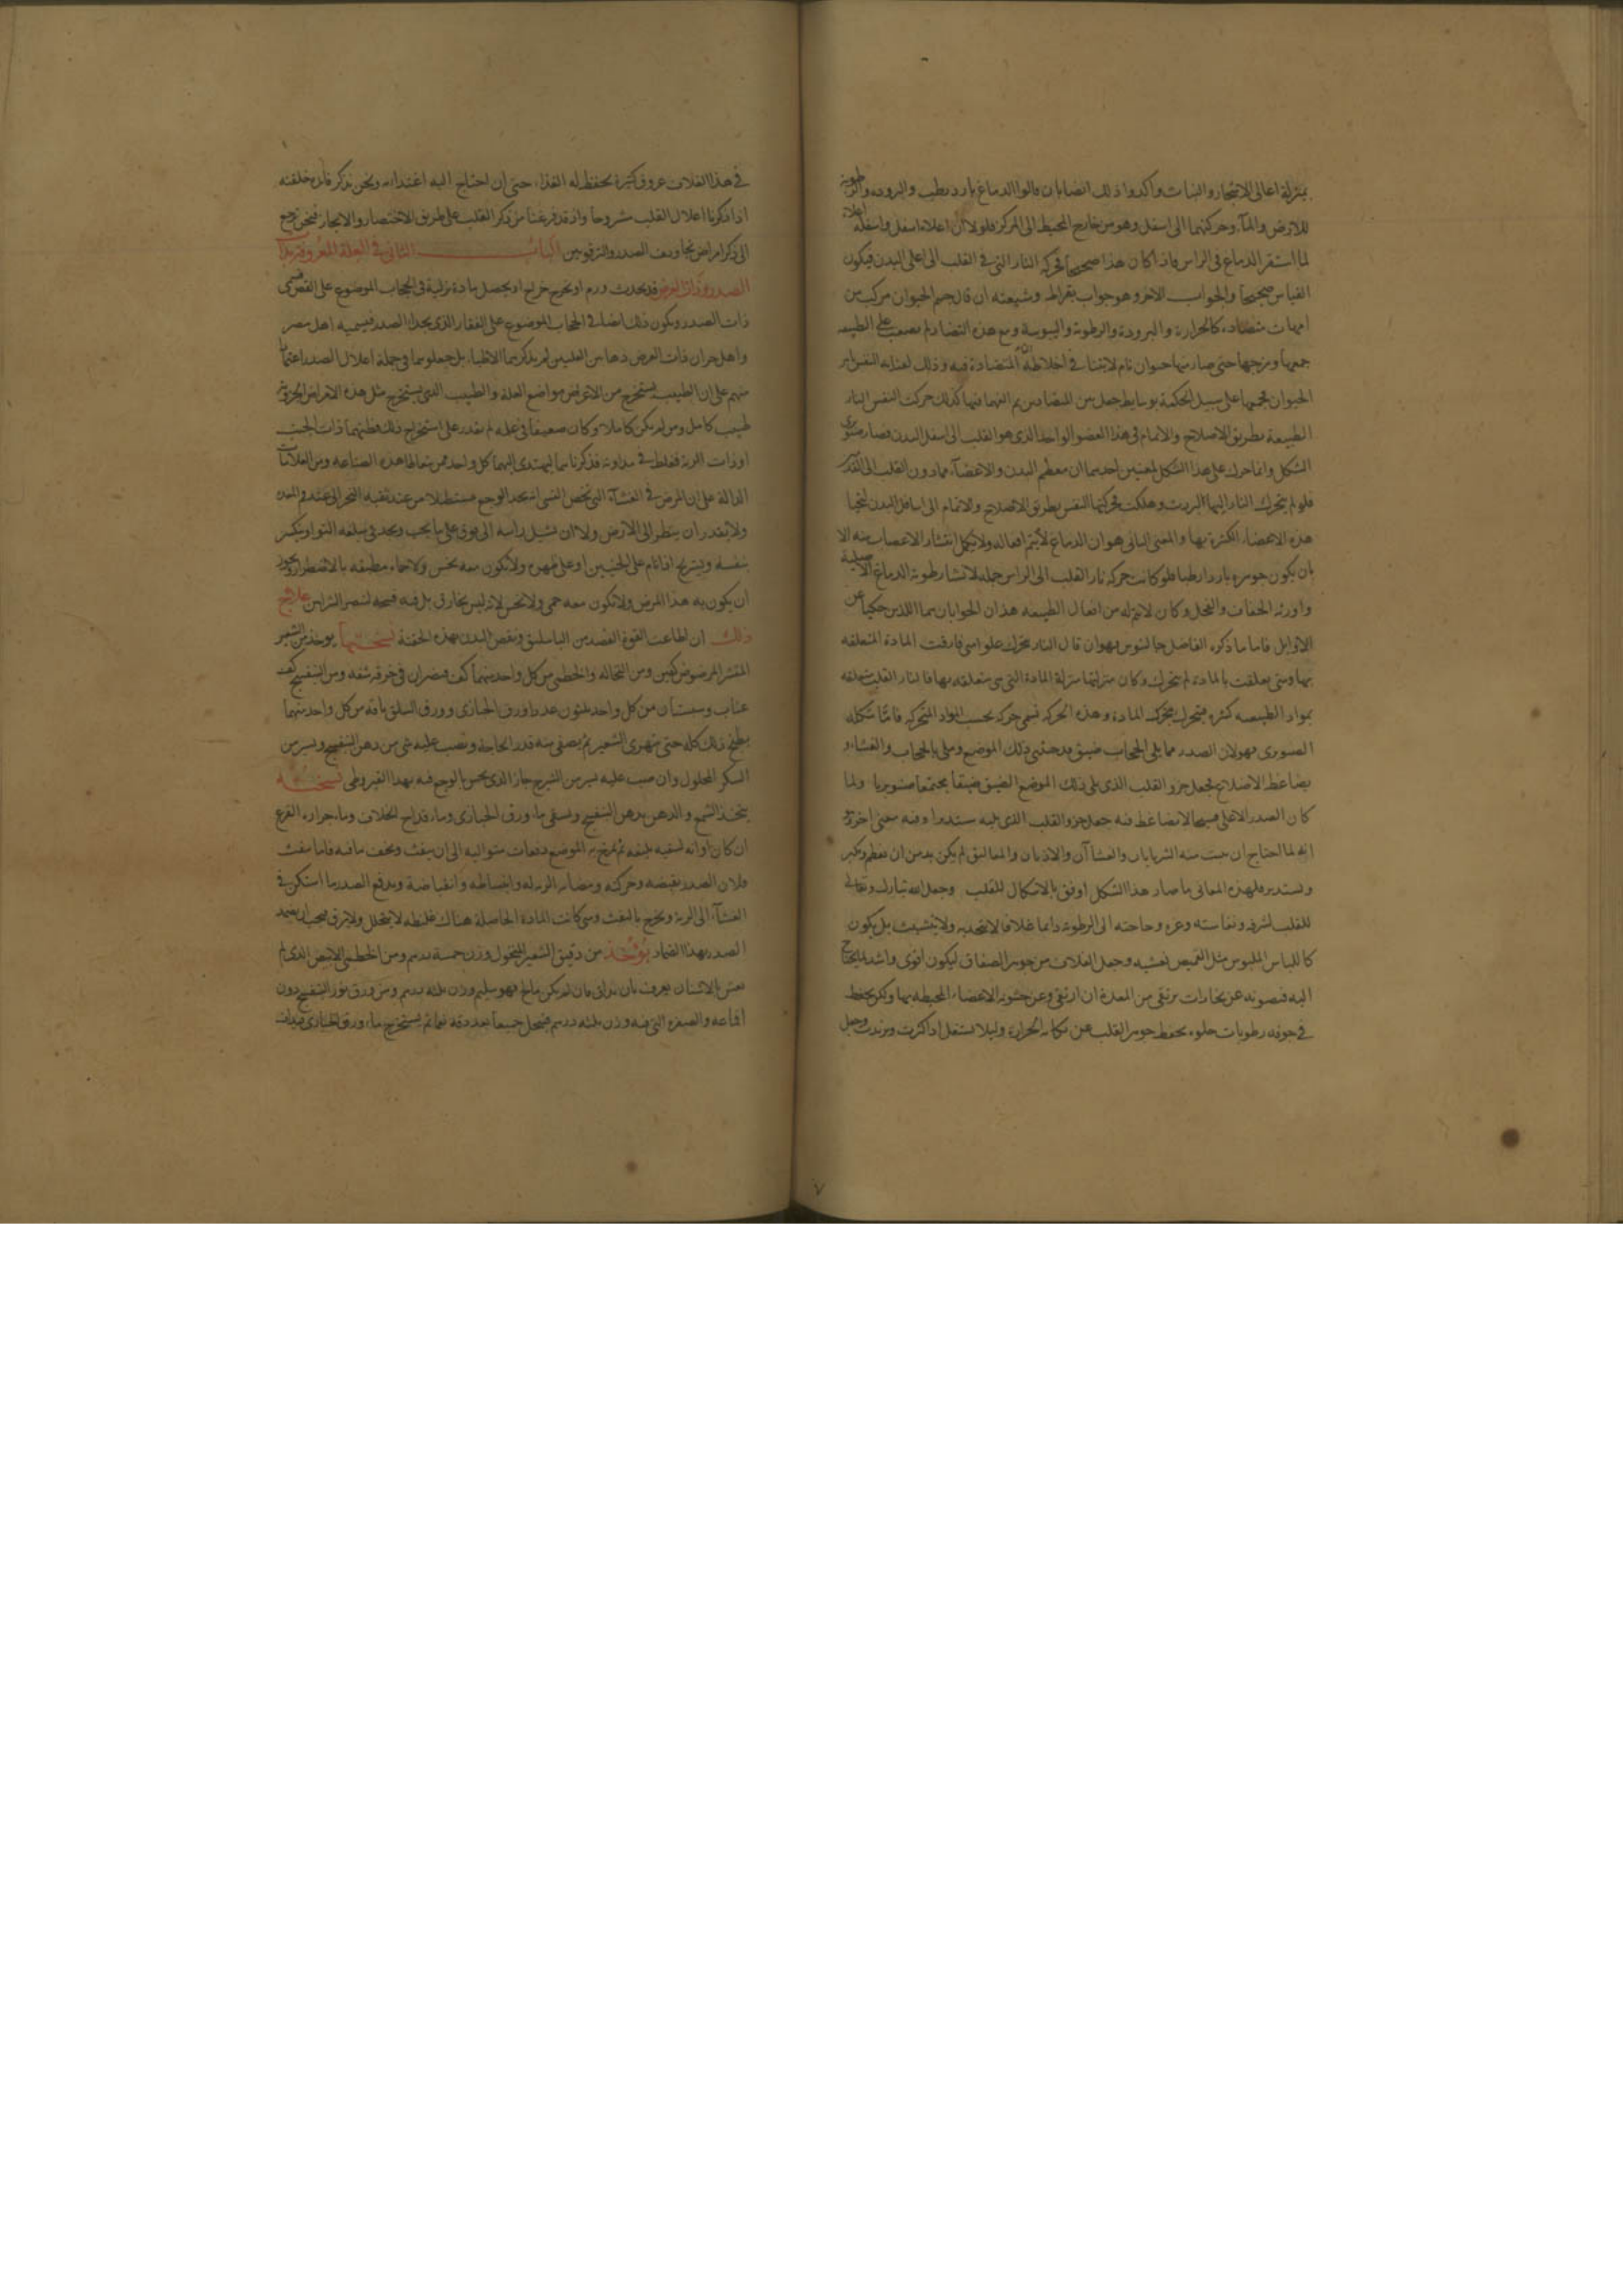 بمنزلة اعالى الاشجار والنبات واكدوا ذلك ايضا بان قالوا الدماغ بارد رطب والبرودة والرطوبة
للارض والمآء وحركتهما الى اسفل وهو من خارج المحيط الى المركز فلولا ان اعلاه اسفل واسفله اعلاه
لما استقر الدماغ فى الراس فاذا كان هذا صحيحا فحركة النار التى فى القلب الى اعلى البدن فيكون
القياس صحيحا والجواب الاخر وهو جواب بقراط وشيعته ان قال جسم الحيوان مركب من
امهات متضادة كالحرارة والبرودة والرطوبة واليبوسة ومع هذه التضاد لم يصعب على الطبيعة
جمعها ومزجها حتى صار منها حيوان تام لاتفاق اخلاطه المتضادة فيه وذلك لعناية النفس
الحيوان فجمعها على سبيل الحكمة بوسايط جعل بين المتضادين كذلك حركت النفس النار
الطبيعة بطريق الاصلاح والاتمام فى هذا العضو الواحد الذى هو القلب الى اسفل البدن فصار صنوبرى
الشكل وانما حرك على هذا الشكل لمعنيين احدهما ان معظم البدن والاعضآء مما دون القلب الى القدم
فلو لم يتحرك النار اليها لبردت وهلكت فحركتها النفس بطريق الاصلاح والاتمام الى اسافل البدن لتحيا
هذه الاعضاء الكثيرة بها والمعنى الثانى هو ان الدماغ لا يتم افعاله ولا يكمل انتشار الاعصاب منه الا
بان يكون جوهره باردا رطبا فلو كانت حركة نار القلب الى الراس جملة لانشا رطوبة الدماغ الاصلية
واورثه الجفاف والقحل وكان لا يتم له من افعال الطبيعة هذان الجوابان هما اللذين حكيا عن
الاوايل فاما ما ذكره الفاضل جالينوس فهو ان قال النار تتحرك علوا متى فارقت المادة المتعلقة
بها ومتى تعلقت بالمادة لم تتحرك وكان منزلتها منزلة المادة التى هى متعلقة بها فالنار القلب متعلقة
بمواد الطبيعة كثيرة فيتحرك بتحرك المادة وهذه الحركة تسمى حركة بحسب المواد المتحركة فامّا شكله
الصنوبرى فهو لان الصدر مما يلى الحجاب ضيق قد حشى ذلك الموضع وملى بالحجاب والغشاء و
بضاغط الاضلاع فجعل جزو القلب الذى يلى ذلك الموضع الضيق ضيقا مجتمعا صنوبريا ولما
كان الصدر الاعلى فسيحا لا تضاغط فيه جعل جزو القلب الذى يليه مستديرا وفيه معنى اخر وهو
انه لما احتاج ان ينبت منه الشريانان والغشاآن والاذنان والمعاليق لم يكن بد من ان يعظم ويكبر
ويستدير فلهذه المعانى ما صار هذا الشكل اوفق بالاشكال للقلب وجعل الله تبارك وتعالى
للقلب لشرفه ونفاسته وعزه وحاجته الى الرطوبة دائما غلافا لا يتحد به ولا يتشبث بل يكون
كاللباس الملبوس مثل القميص يغشيه وجعل الغلاف من جوهر الصفاق ليكون اقوى واشد لما يحتاج
اليه فيصونه عن بخارات ترتقى من المعدة ان ارتقى وعن خشونة الاعضاء المحيطة بها ولكى يحفظ
فى جوفه رطوبات حلوة يحفظ جوهر القلب عن نكاية الحرارة وليلا تشتعل اذا كثرت وتزيدت وجعل
فى هذا الغلاف عروق كثيرة تحفظ له الغذاء حتى ان احتاج اليه اغتذا به ونحن نذكر خلقته
اذا ذكرنا اعلال القلب مشروحا واذ قد فرغنا من ذكر القلب على طريق الاختصار والايجاز فنحن نرجع
الى ذكر امراض تجاويف الصدر والترقوتين البـاب الثانى فى العلة المعروفة بذات
الصدر وذات العرض قد يحدث ورم او يخرج خراج او يحصل مادة نزلية فى الحجاب الموضوع على القص فتسمى
ذات الصدر ويكون ذلك ايضا فى الحجاب الموضوع على الفقار الذى بحذاء الصدر فيسميه اهل مصر
واهل حران ذات العرض وهاتين العلتين لم يذكرهما الاطباء بل جعلوهما فى جملة اعلال الصدر اعتمادا
منهم على ان الطبيب يستخرج من الاعراض مواضع العلة والطبيب الذى يستخرج مثل هذه الامراض الجزوية
طبيب كامل ومن لم يكن كاملا وكان ضعيفا فى علمه لم يقدر على استخراج ذلك فظنهما ذات الجنب
او ذات الرية فغلط فى مداوته فذكرناهما ليهتدى اليهما كل واحد ممن يتعاطا هذه الصناعة ومن العلامات
الدالة على ان المرض فى الغشآء الذى يخص القس ان يجد الوجع مستطيلا من عند ثقبة النحر الى عند فم المعدة
ولا يقدر ان ينظر الى الارض ولا ان يشيل راسه الى فوق على ما يجب ويجد فى مبلغه التواء ويتكسر
بنفسه ويستريح اذا نام على الجنبين او على ظهره ولا يكون معه نخس ولا حماء مطبقة بالاضطرار ويجوز
ان يكون به هذا المرض ولا تكون معه حمى ولا نخس لانه ليس بخارق بل فيه فسحة لنصر الشراس علاج
ذلك ان اطاعت القوة الفصد من الباسليق ونفض البدن بهذه الحقنة نسختها يوخذ من الشعير
المقشر المرضوض كفين ومن النخالة والخطمى من كل واحد منهما كف فيصران فى خرقة شفة ومن البنفسج كف
عناب وسبستان من كل واحد ثلثون عددا ورق الخبازى وورق السلق باقة من كل واحد منهما
يطبخ ذلك كله حتى يتهرى الشعير ثم يصفى منه قدر الحاجة ويصب عليه شى من دهن البنفسج ويسير من
السكر المحلول وان صب عليه يسير من الشيرج جاز الذى يحس بالوجع فيه بهذا القيروطى نسخته
يتخذ الشمع والدهن بدهن البنفسج ويسقى ماء ورق الخبازى وماء قداح الخلاف وماء جرادة القرع
ان كان اوانه تسقيه يليفه ثم يمرخ به الموضع دفعات متوالية الى ان ينفث ويجف ما فيه فاما ينفث
فلان الصدر بقبضه وحركته ومضامة الرية له وانبساطه وانقباضه ويدفع الصدر ما استكن فى
الغشآء الى الرية ويخرج بالنفث ومتى كانت المادة الحاصلة هناك غليظة لا يتحلل ولا يرق فيجب ان يضمد
الصدر بهذا الضماد يؤخذ من دقيق الشعير المنخول وزن خمسة درهم ومن الخطمى الابيض الذى لم
يغش بالاشنان يعرف بان يذاق فان لم يكن مالحا فهو سليم وزن ثلثة درهم ومن ورق نور البنفسج دون
اقماعه والصفرة التى فيه وزن ثلثة درهم فينخل جميعا بعد دقه نعما ثم يستخرج ماء ورق الخبازى فيداف